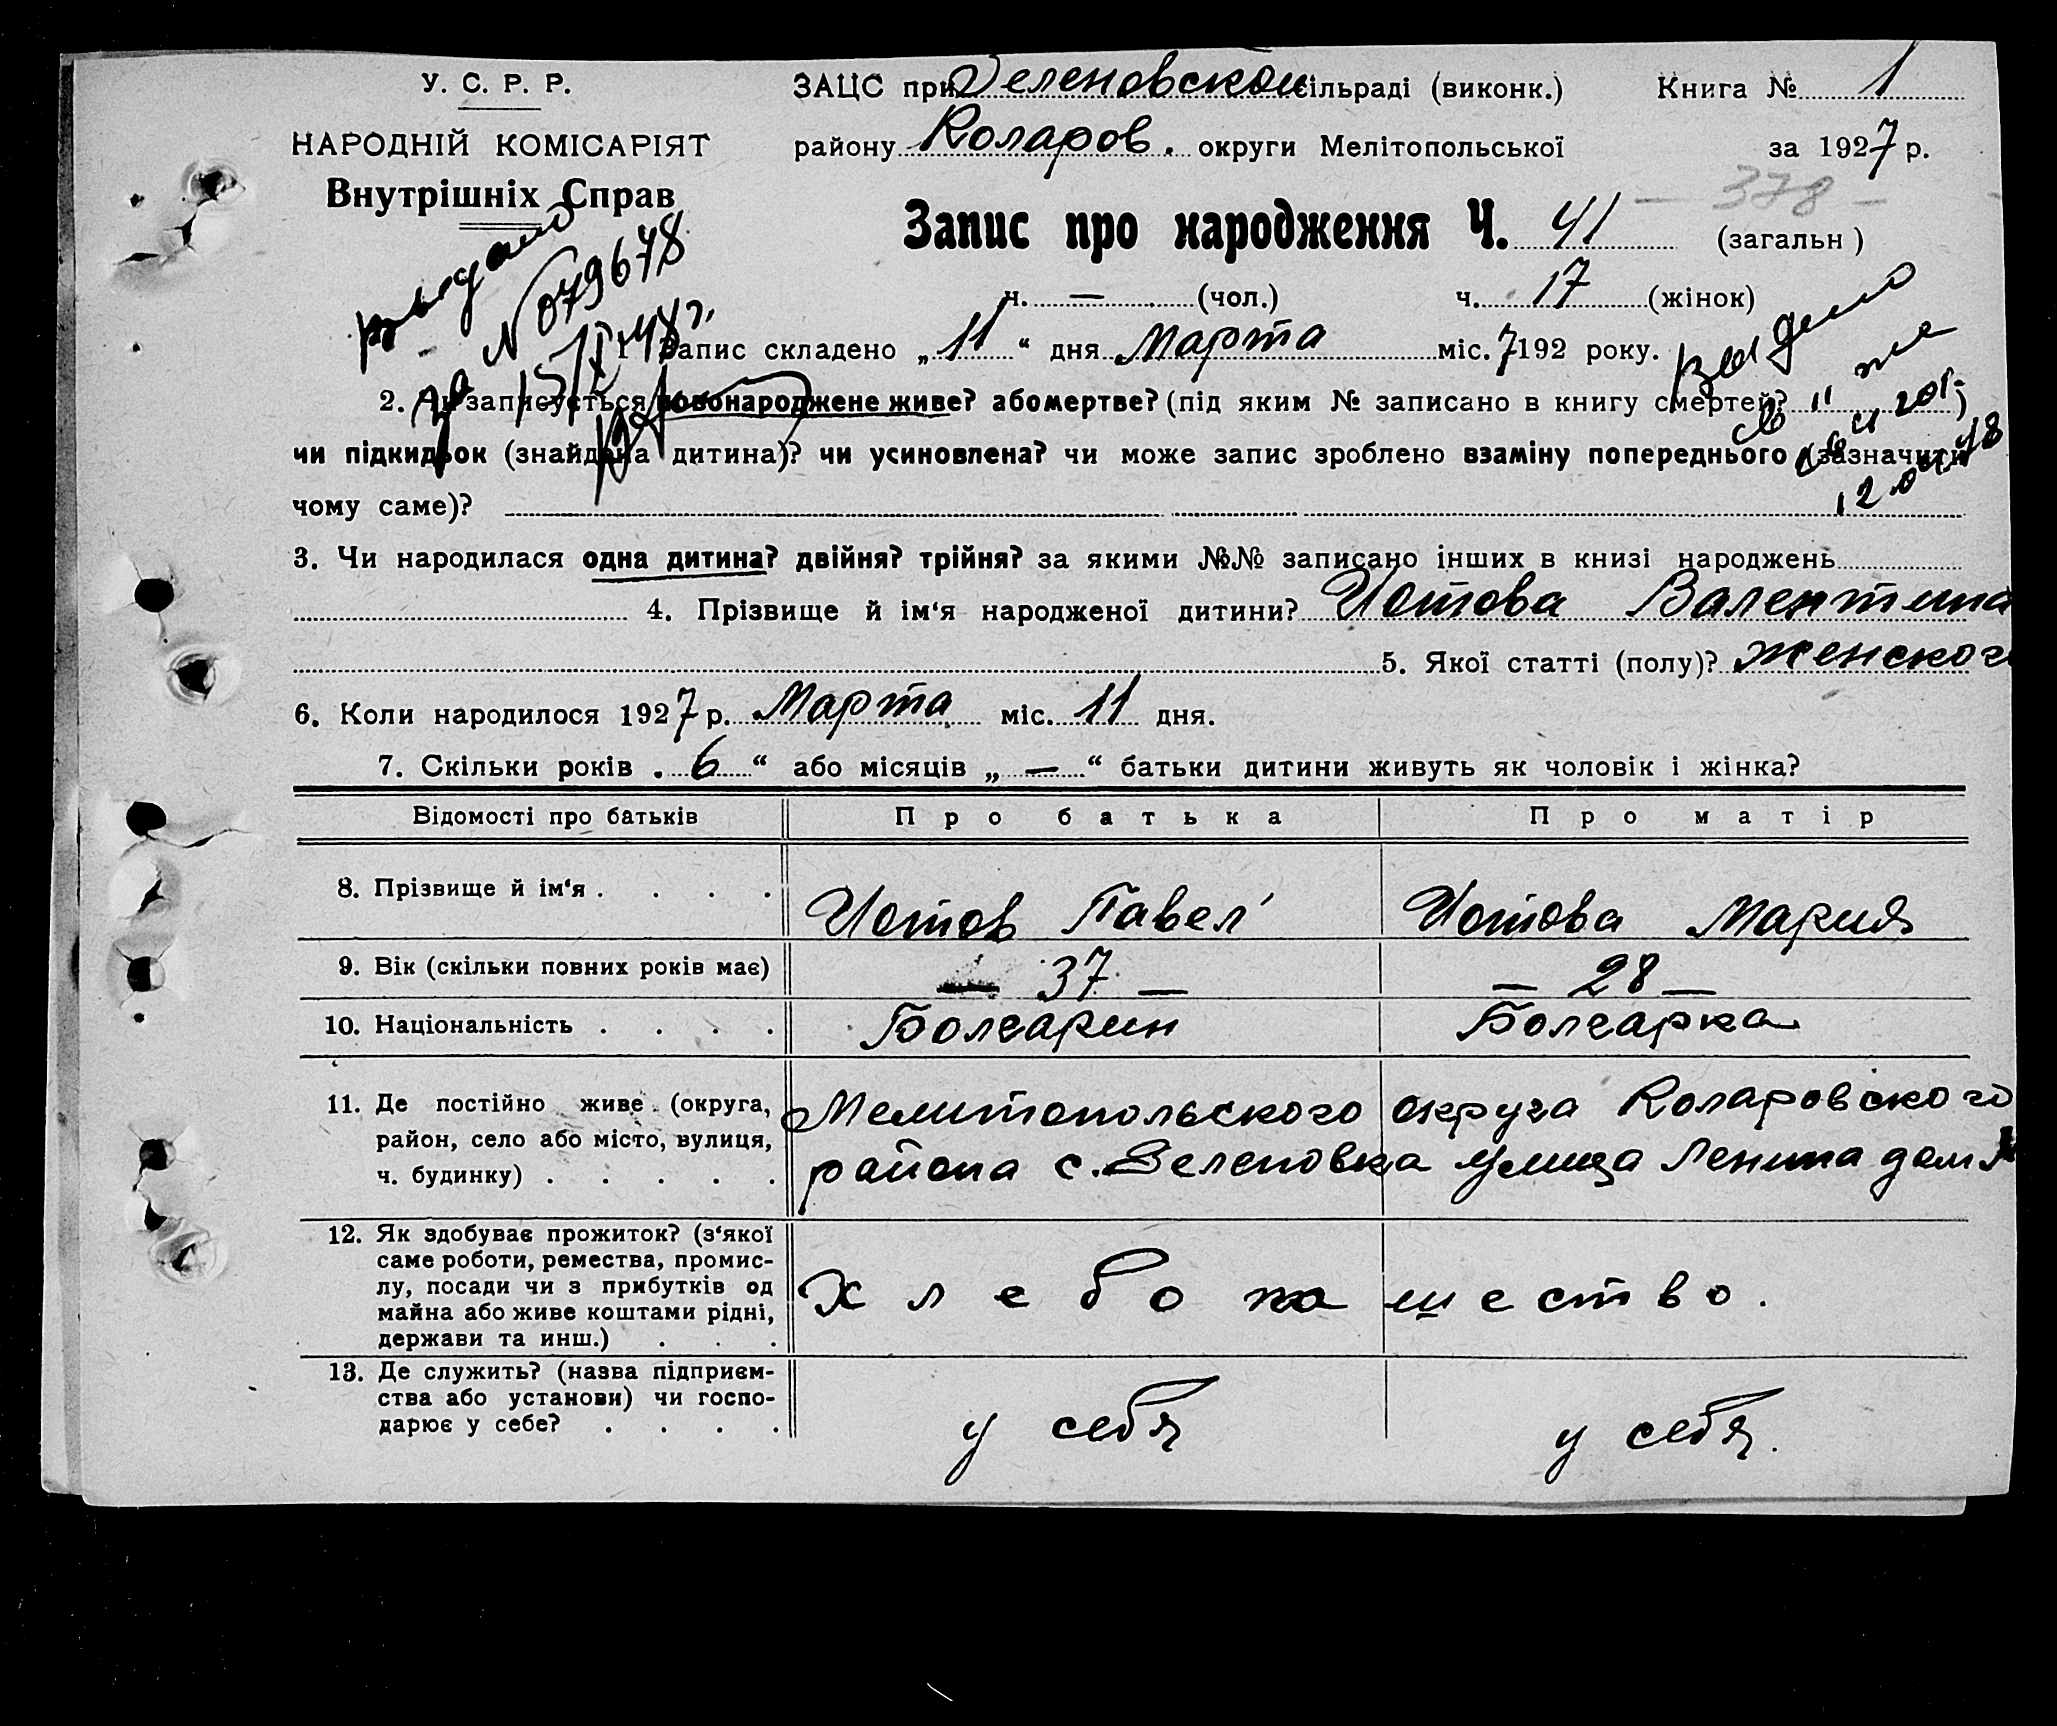 У. С. Р. Р.
НАРОДНІЙ КОМІСАРІЯТ
Внутрішніх Справ
ЗАЦС при Зеленовской сільраді (виконк.) Книга № 1
району Коларов. округи Мелітопольської за 1927 р.
Запис про народження Ч. 41 — 378 —
(загальн)
ч. — (чол.) ч. 17 (жінок)
выдано
№ 079678
Запис складено „11“ дня Марта міс. 7192 року.
выдано
2. Чи записується новонароджене живе? або мертве? (під яким № записано в книгу смертей? )
чи підкидьок (знайдена дитина)? чи усиновлена? чи може запис зроблено взаміну попереднього (зазначити
чому саме)?
3. Чи народилася одна дитина? двійня? трійня? за якими №№ записано інших в книзі народжень
4. Прізвище й ім‘я народженої дитини? Иотова Валентина
5. Якої статті (полу)? женского
6. Коли народилося 1927 р. Марта міс. 11 дня.
7. Скільки років „ 6 “ або місяців „ — “ батьки дитини живуть як чоловік і жінка?
Відомості про батьків Про батька Про матір
8. Прізвище й ім‘я . . . . Иотов Павел Иотова Мария
9. Вік (скільки повних років має) — 37 — — 28 —
10. Національність . . . . Болгарин Болгарка
11. Де постійно живе (округа, район, село або місто, вулиця, ч. будинку) . . . . .
Мелитопольского округа Коларовского
района с. Зеленовка улица Ленина дом
12. Як здобуває прожиток? (з‘якої
саме роботи, ремества, промис-
лу, посади чи з прибутків од
майна або живе коштами рідні,
держави та инш.) . . .
Хлебопашество.
13. Де служить? (назва підприєм-
ства або установи) чи госпо-
дарює у себе? . . . .
у себя у себя.